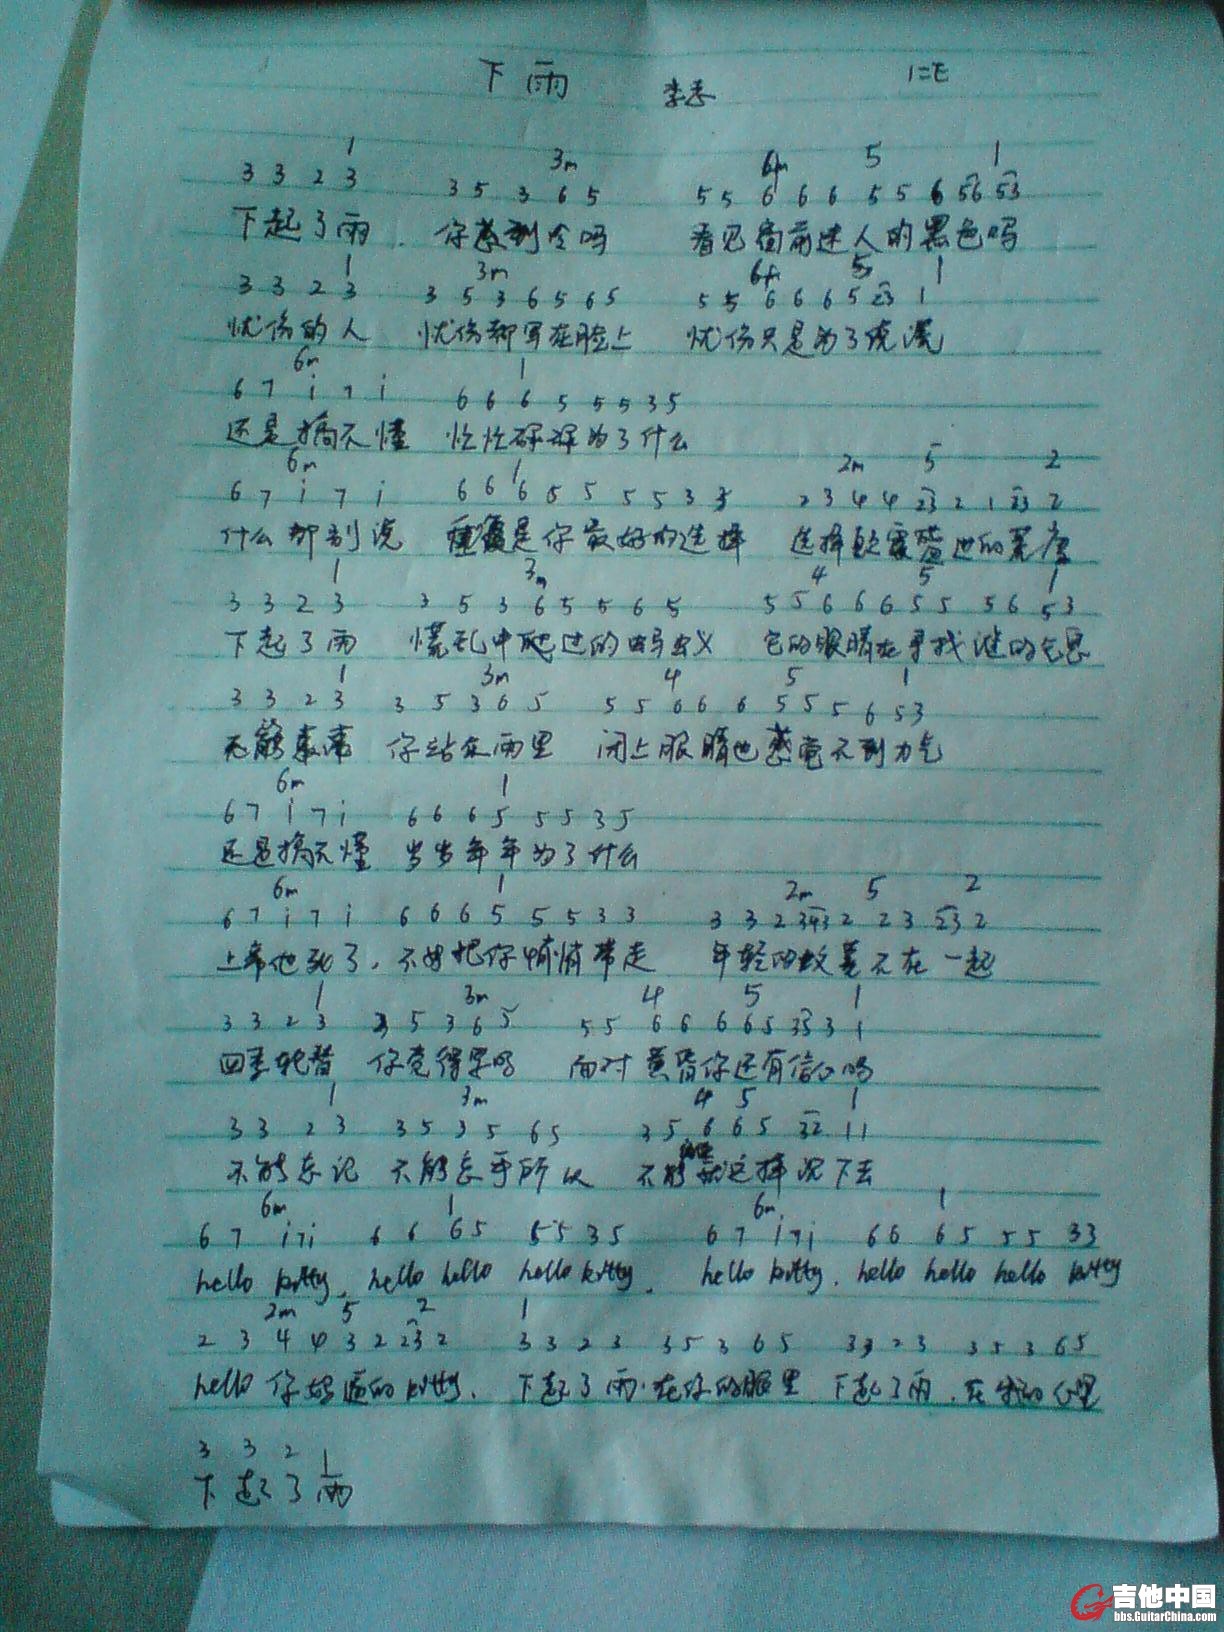 下雨 李志 1=E
1 3m 6m 5 1
3 3 2 3 3 5 3 6 5 5 5 6 6 6 5 5 6 56 53
下起了雨. 你感到冷吗 看见窗前迷人的黑色吗
1 3m 6m 5 1
3 3 2 3 3 5 3 6 5 6 5 5 5 6 6 6 5 23 1
忧伤的人 忧伤都写在脸上 忧伤只是为了
6m 1
6 7 i 7 i 6 6 6 5 5 5 3 5
还是搞不懂 忙忙碌碌为了什么
6m 1 2m 5 2
6 7 i 7 i 6 6 6 5 5 5 5 3 3 2 3 4 4 23 2 1 23 2
什么都别说 是你最好的选择 选择
1 3m 4 5 1
3 3 2 3 3 5 3 6 5 5 6 5 5 5 6 6 6 5 5 5 6 5 3
下起了雨 慌乱中爬过的蚂蚁 它的眼睛在寻找谜的气息
1 3m 4 5 1
3 3 2 3 3 5 3 6 5 5 5 6 6 6 5 5 5 6 53
你站在雨里 闭上眼睛也感觉不到力气
6m 1
6 7 i 7 i 6 6 6 5 5 5 3 5
还是搞不懂 岁岁年年为了什么
6m 1 2m 5 2
6 7 i 7 i 6 6 6 5 5 5 3 3 3 3 2 343 2 2 3 23 2
上帝他死了, 不如把你悄悄带走 年轻的 不在一起
1 3m 4 5 1
3 3 2 3 3 5 3 6 5 5 5 6 6 6 6 5 35 3 1
四季轮替 你觉得累吗 面对黄昏你还有信心吗
1 3m 4 5 1
3 3 2 3 3 5 3 5 6 5 3 5 6 6 5 32 1 1
不能忘记 不能忘乎所以 不能就这样沉下去
6m 1 6m 1
6 7 i 7 i 6 6 6 5 5 5 3 5 6 7 i 7 i 6 6 6 5 5 5 3 3
hello kitty, hello hello hello kitty, hello kitty, hello hello hello kitty
2m 5 2 1
2 3 4 4 3 2 23 2 3 3 2 3 3 5 3 6 5 3 3 2 3 3 5 3 6 5
hello 你好 的 kitty. 下起了雨. 在你的眼里 下起了雨. 在我的心里
3 3 2 1
下起了雨
吉他中国
bbs.GuitarChina.com